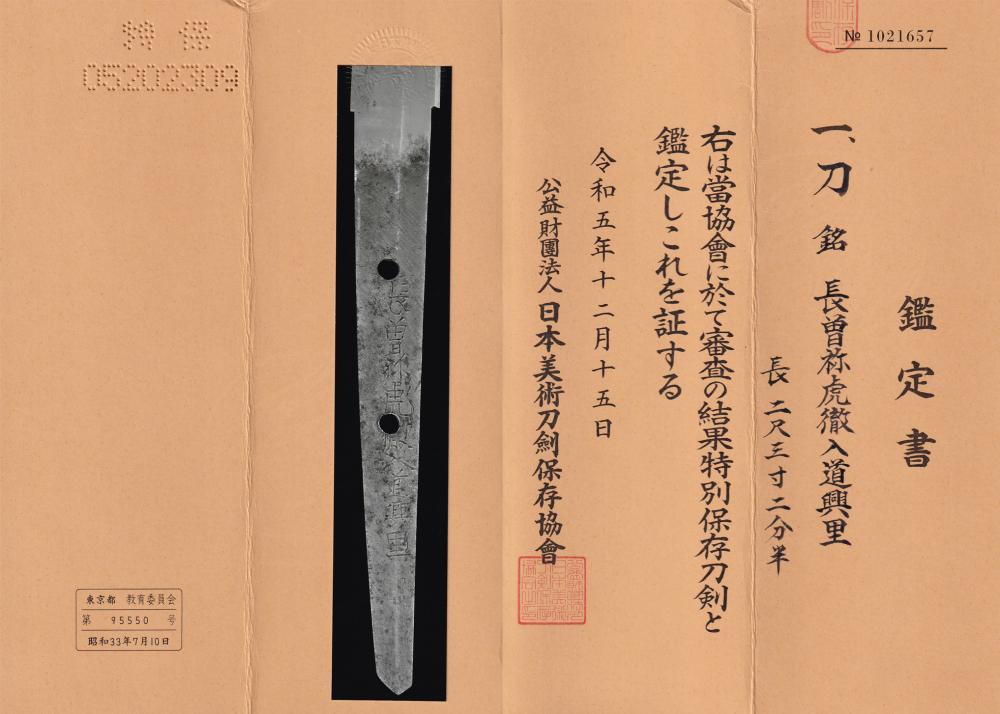 № 1021657
鑑定書
一、刀 銘 長曽祢虎徹入道興里
長 二尺三寸二分半
右は當協會に於て審査の結果特別保存刀剣と
鑑定しこれを証する
令和五年十二月十五日
公益財團法人 日本美術刀劍保存協會
特保
05202309
東京都 教育委員会
第 95550 号
昭和33年7月10日